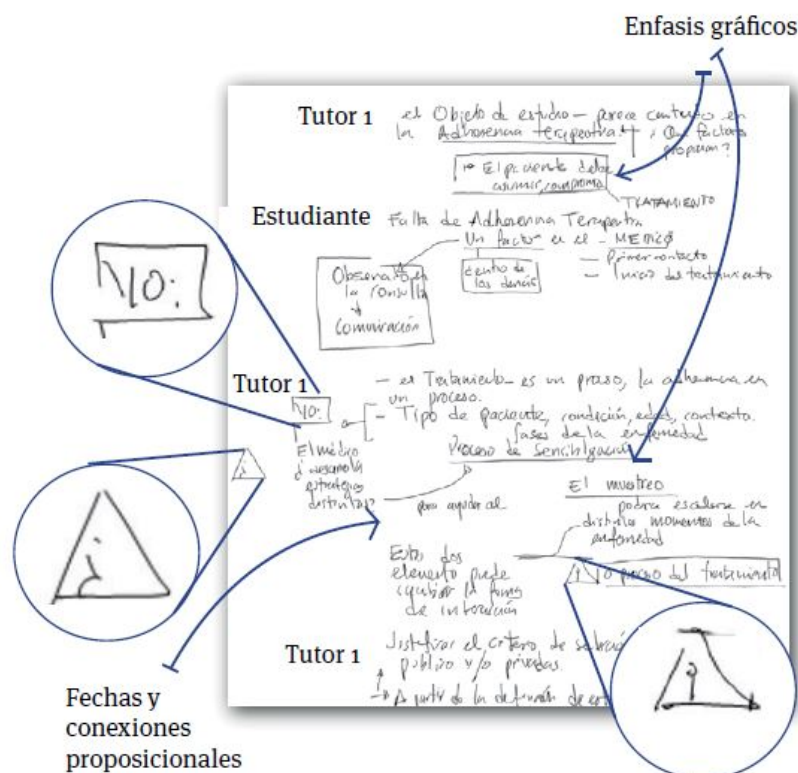 Enfasis gráficos
Tutor 1
el Objeto de estudio – parece contenerse en
la Adherencia terapeutica. ¿Que factores
propician?
El paciente debe
asumir, compromiso
TRATAMIENTO
Estudiante
Falta de Adherencia Terapeutica
Un factor es el – MEDICO
dentro de
los demás
– Primer contacto
– Inicio del tratamiento
Observarlo en
la consulta
Comunicación
Tutor 1
– el Tratamiento – es un proceso, la adherencia en
un proceso.
YO:
– Tipo de paciente, condición, edad, contexto.
fases de la enfermedad
Proceso de Sensibilización
El médico
desarrolla
estrategias
distintas?
para ayudar al
El muestreo
podria escalarse en
distintos momentos de la
enfermedad
Estos dos
elemento puede
cambiar la forma
de interacción
o proceso del tratamiento
Tutor 1
Justificar el criterio de
publico y/o privadas.
A partir de la definición de
YO:
i
Fechas y
conexiones
proposicionales